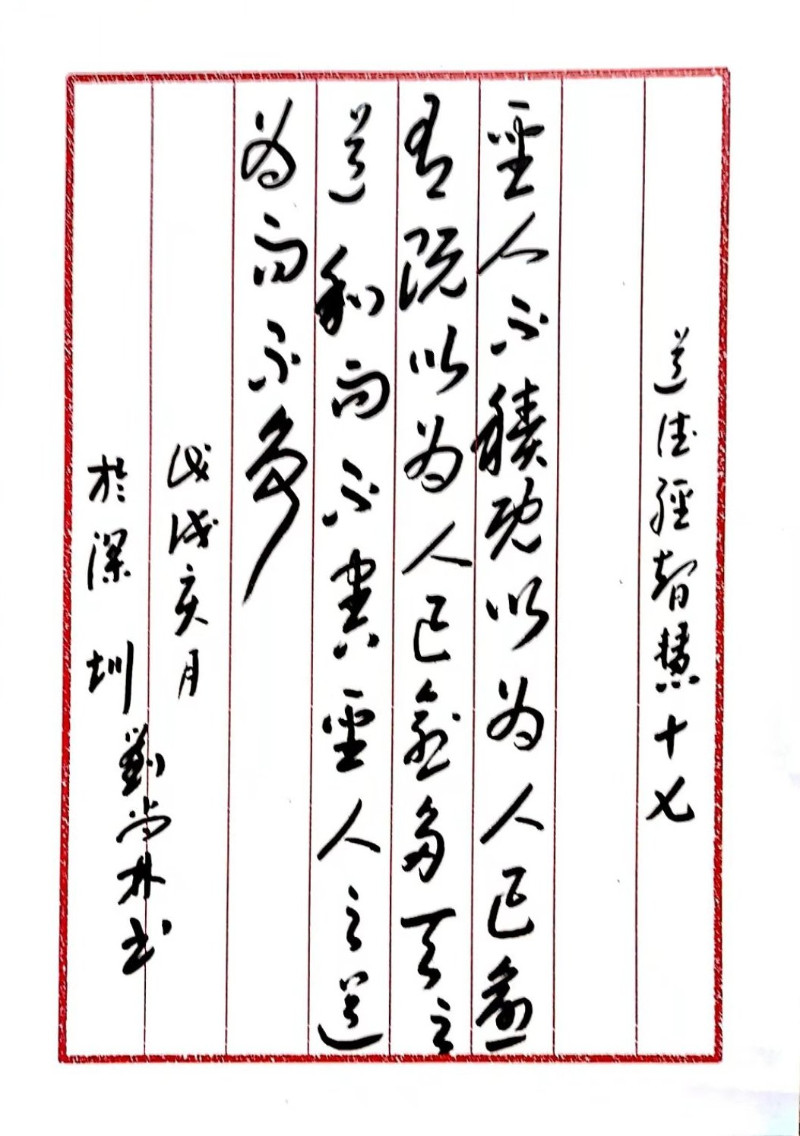 道德經智慧十七
聖人不積既以為人己愈
有既以為人己愈多天之
道利而不害聖人之道
為而不爭
戊戌亥月
於深圳劉尚林書